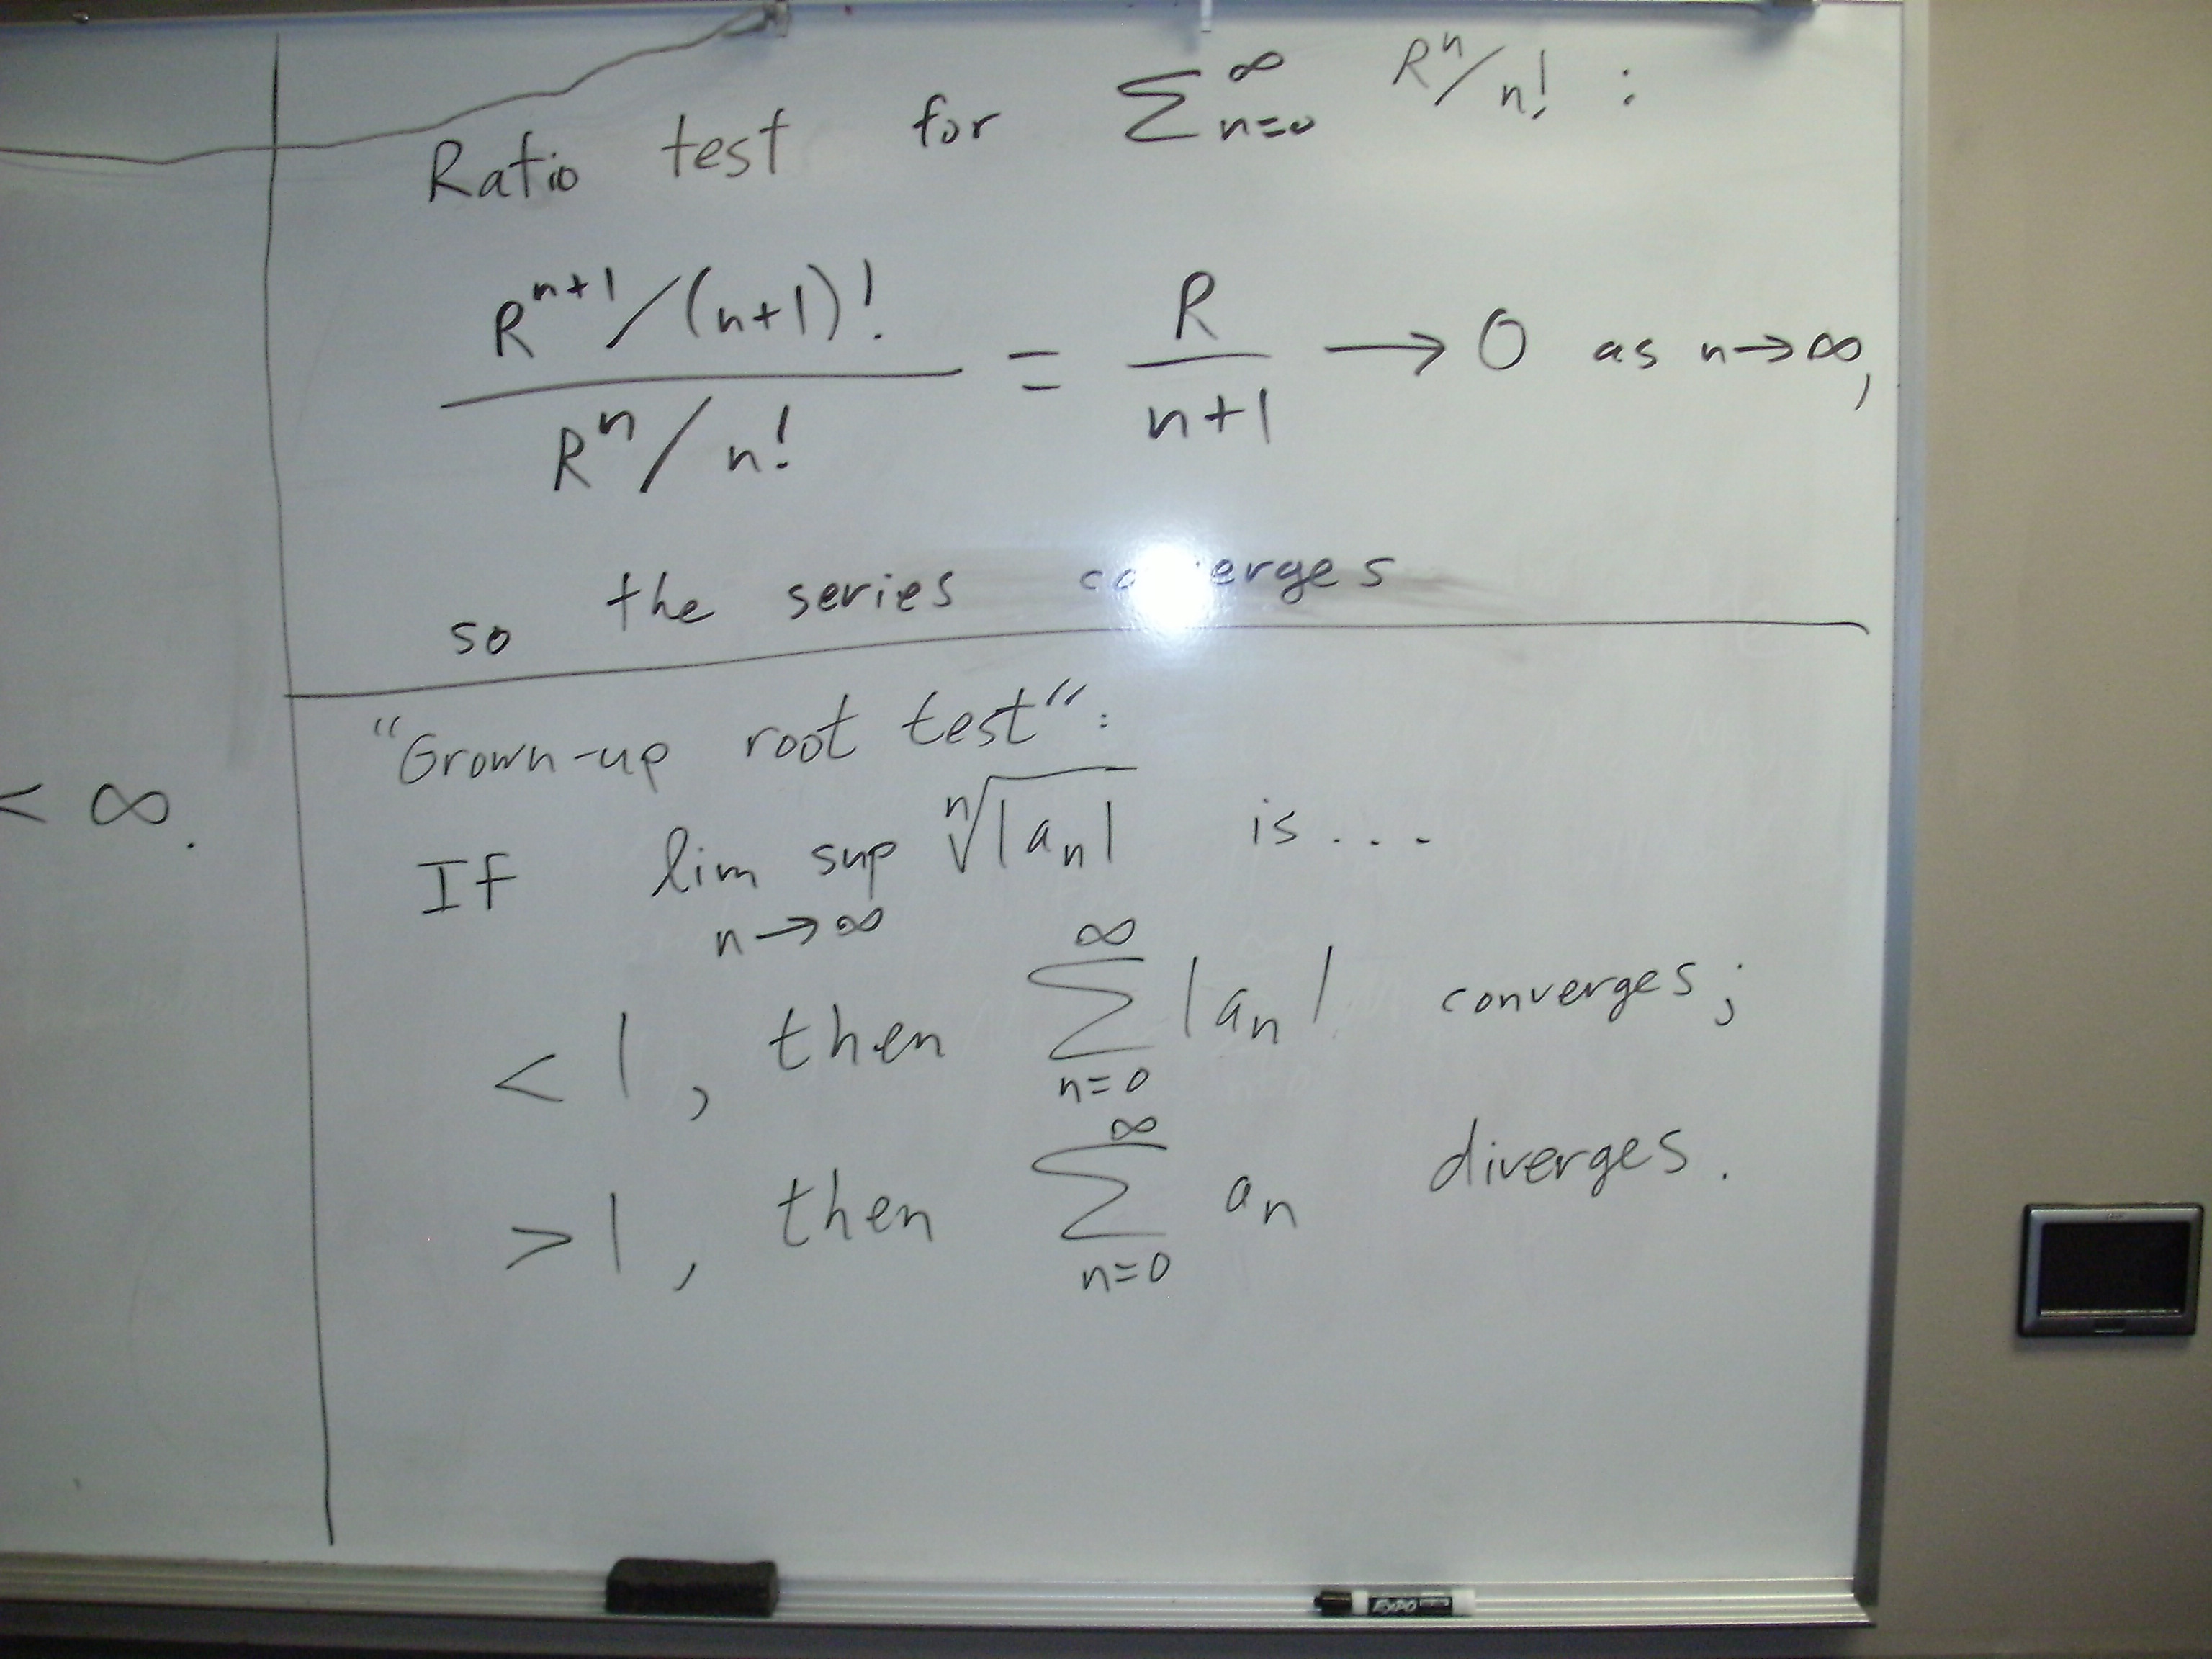 Ratio test for ∑_{n=0}^{∞} R^n/n! :
R^{n+1}/(n+1)! / R^n/n! = R/(n+1) → 0 as n→∞,
so the series converges
"Grown-up root test":
If lim sup_{n→∞} ⁿ√|a_n| is...
< 1, then ∑_{n=0}^{∞} |a_n| converges;
> 1, then ∑_{n=0}^{∞} a_n diverges.
< ∞.
EXPO